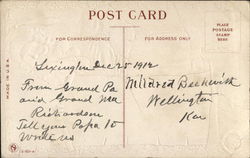 POST CARD
FOR CORRESPONDENCE
FOR ADDRESS ONLY
PLACE
POSTAGE
STAMP
HERE
MADE IN U.S.A.
Lexington Dec 25 1912
From Grand Pa
and Grand Ma
Richardson
Tell your Papa to
Write us
Mildred Beckwith
Wellington
Kan